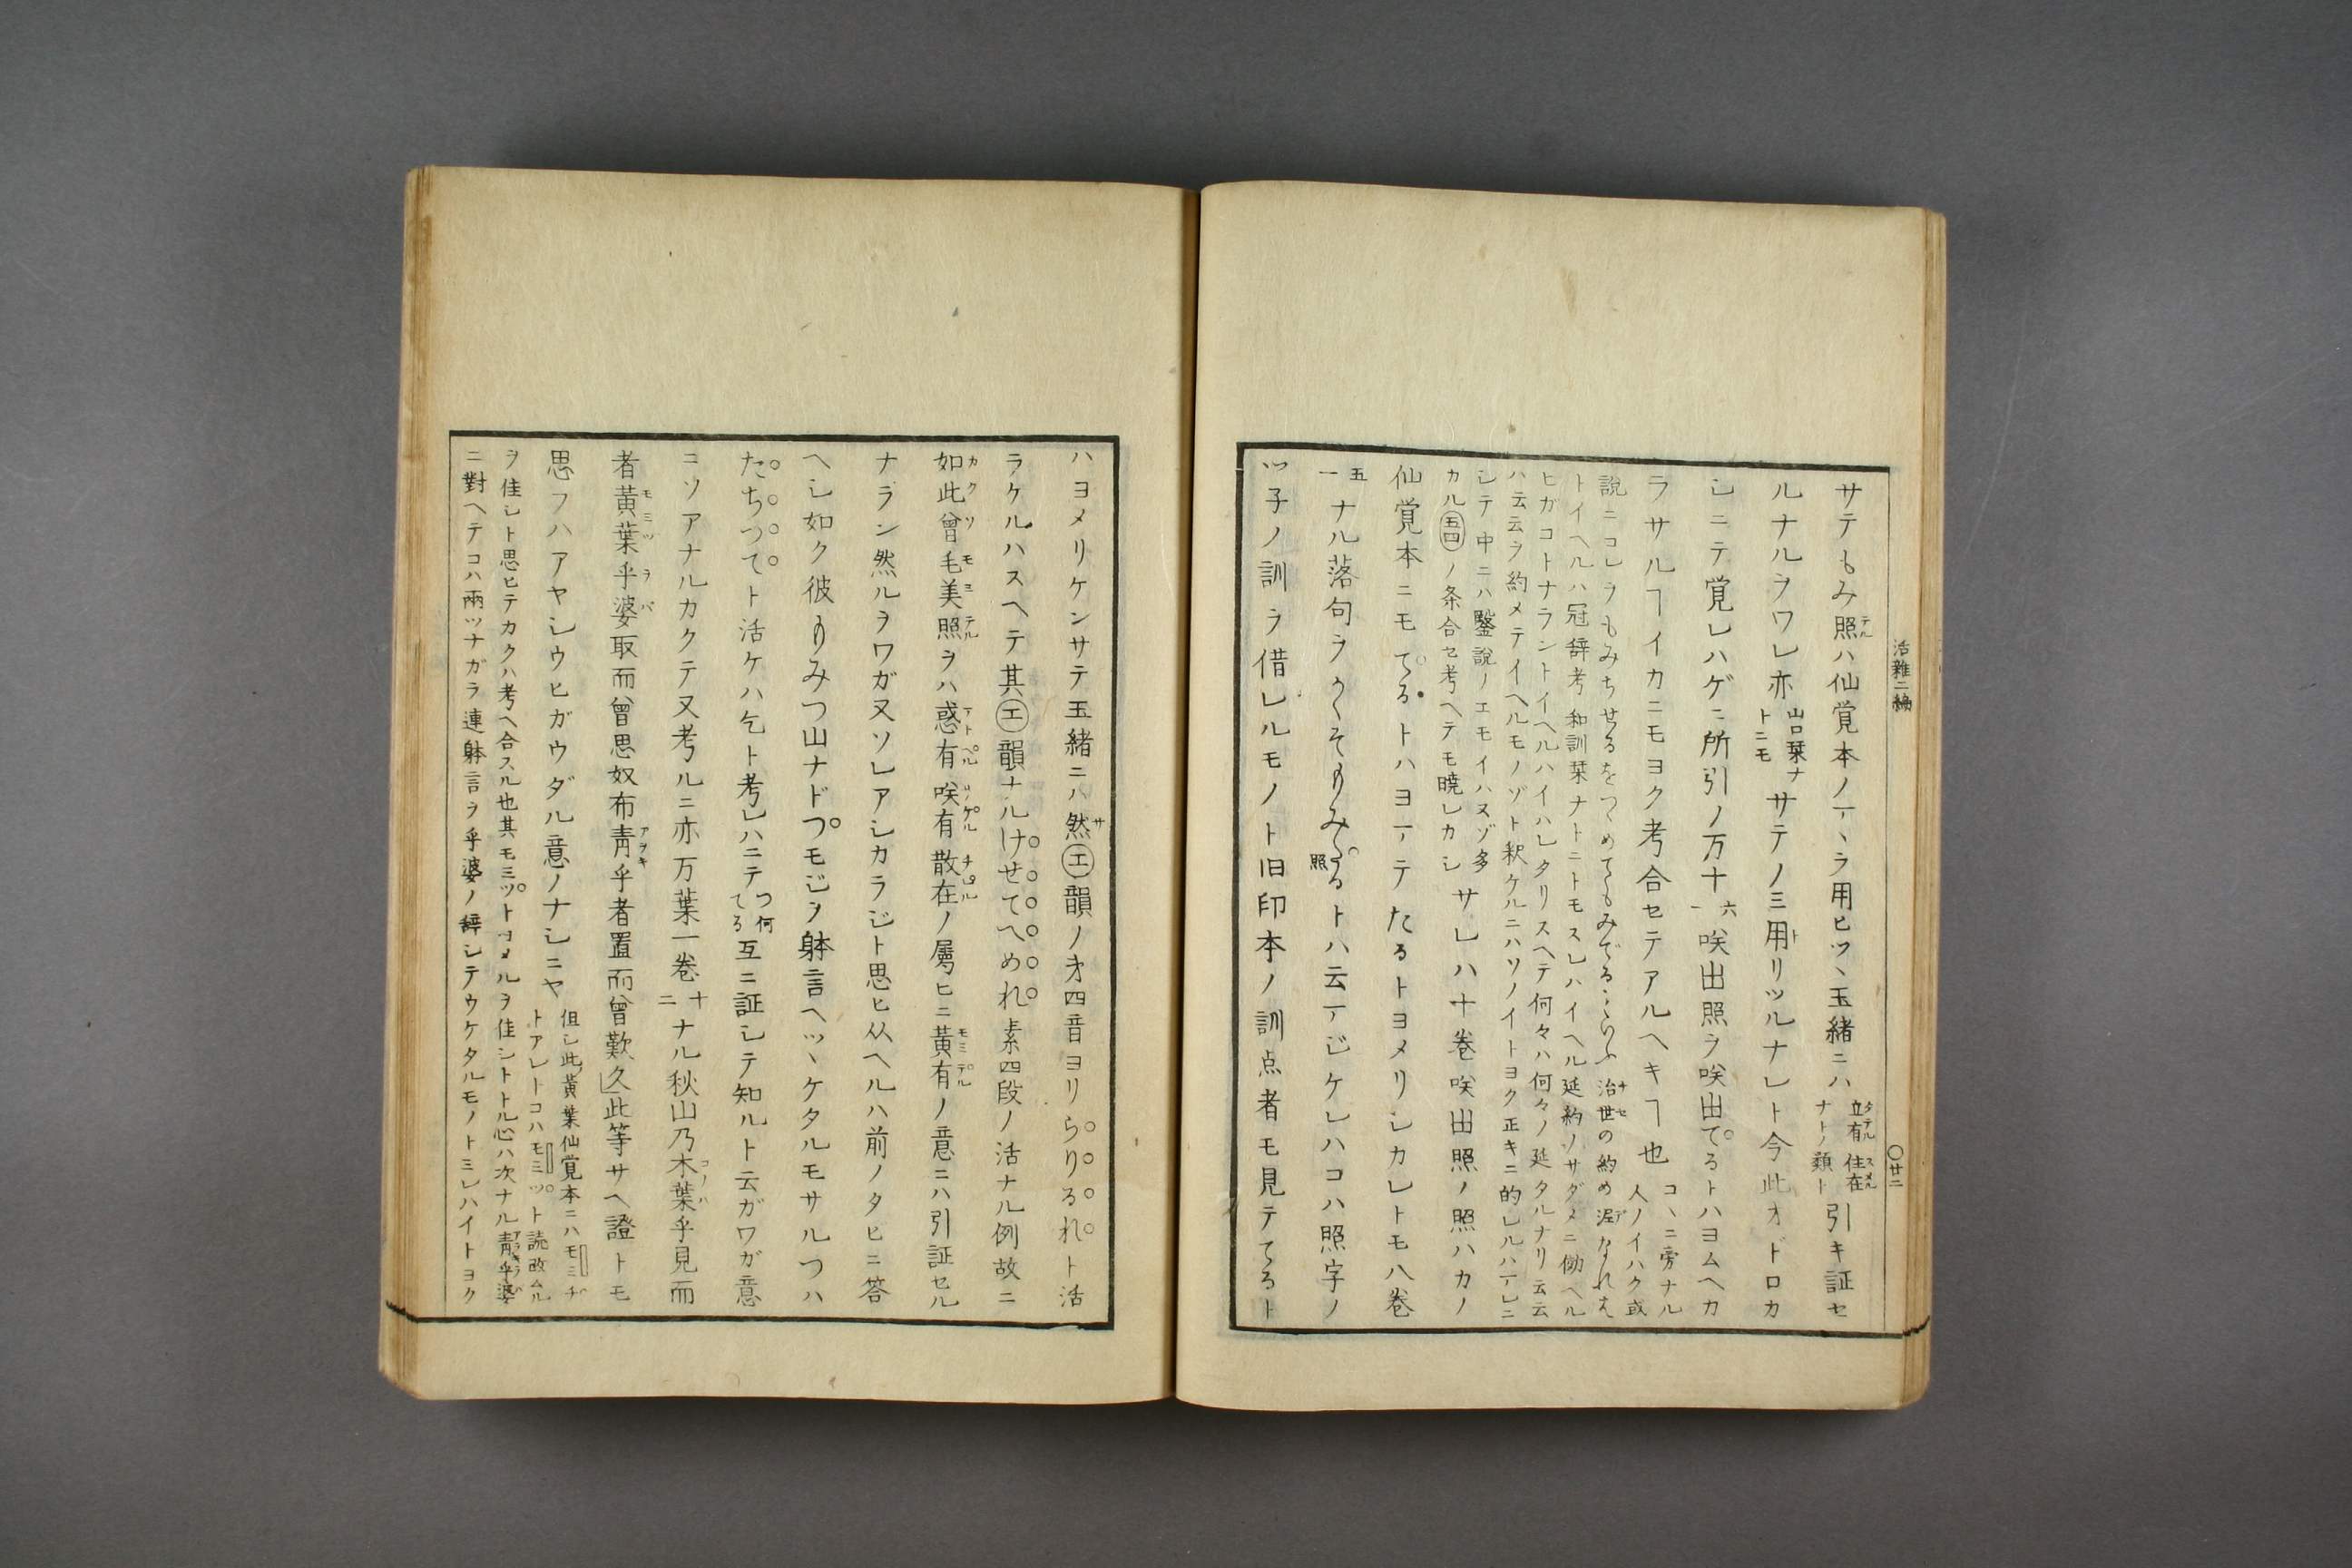 活雑二編
〇廿二
サテもみ照ハ仙覚本ノマヽヲ用ヒツヽ玉緒ニハ立有住在ナトノ類ト引キ証セ
ルナルヲワレ亦山口栞ナトニモサテノミ用リツルナレト今此オドロカ
シニテ覚レハゲニ所引ノ万十六一咲出照ヲ咲出てるトハヨムヘカ
ラサルヿイカニモヨク考合セテアルヘキヿ也コヽニ旁ナル人ノイハク或
説ニコレヲもみちせるをつゝめてもみでるといふ治世の約め泥なれは
トイヘルハ冠辞考和訓栞ナトニトモスレハイヘル延約ノサダメニ働ヘル
ヒガコトナラントイヘルハイハレタリスヘテ何々ハ何々ノ延タルナリ云云
ハ云云ヲ約メテイヘルモノゾト釈ケルニハソノイトヨク正キニ的レルハマレニ
シテ中ニハ鑿説ノエモイハヌゾ多
カル五四ノ条合セ考ヘテモ暁レカシサレハ十巻咲出照ノ照ハカノ
仙覚本ニモてるトハヨマテたるトヨメリシカレトモ八巻
五一ナル落句ヲかくそもみてるトハ云マジケレハコハ照字ノ
照
ツ子ノ訓ヲ借レルモノト旧印本ノ訓点者モ見テてるト
ハヨメリケンサテ玉緒ニハ然エ韻ノ才四音ヨリらりるれト活
ラケルハスヘテ其エ韻ナルけせてへめれ素四段ノ活ナル例故ニ
如此曾毛美照ヲハ惑有咲有散在ノ属ヒニ黄有ノ意ニハ引証セル
ナラン然ルヲワガ又ソレアシカラジト思ヒ从ヘルハ前ノタヒニ答
ヘシ如ク彼もみつ山ナドつモジヲ躰言ヘツヽケタルモサルつハ
たちつてト活ケハ乞ト考レハニテつ何てる互ニ証シテ知ルト云ガワガ意
ニソアナルカクテ又考ルニ亦万葉一巻十二ナル秋山乃木葉乎見而
者黄葉乎婆取而曾思奴布青乎者置而曾歎久此等サヘ證トモ
思フハアヤシウヒガウダル意ノナシニヤ但シ此黄葉仙覚本ニハモミヂ
トアレトコハモミツト読改ムル
ヲ佳シト思ヒテカクハ考ヘ合スル也其モミツトヨメルヲ佳シトトル心ハ次ナル青乎婆
ニ對ヘテコハ兩ツナガラ連躰言ヲ乎婆ノ辞シテウケタルモノトミレハイトヨク